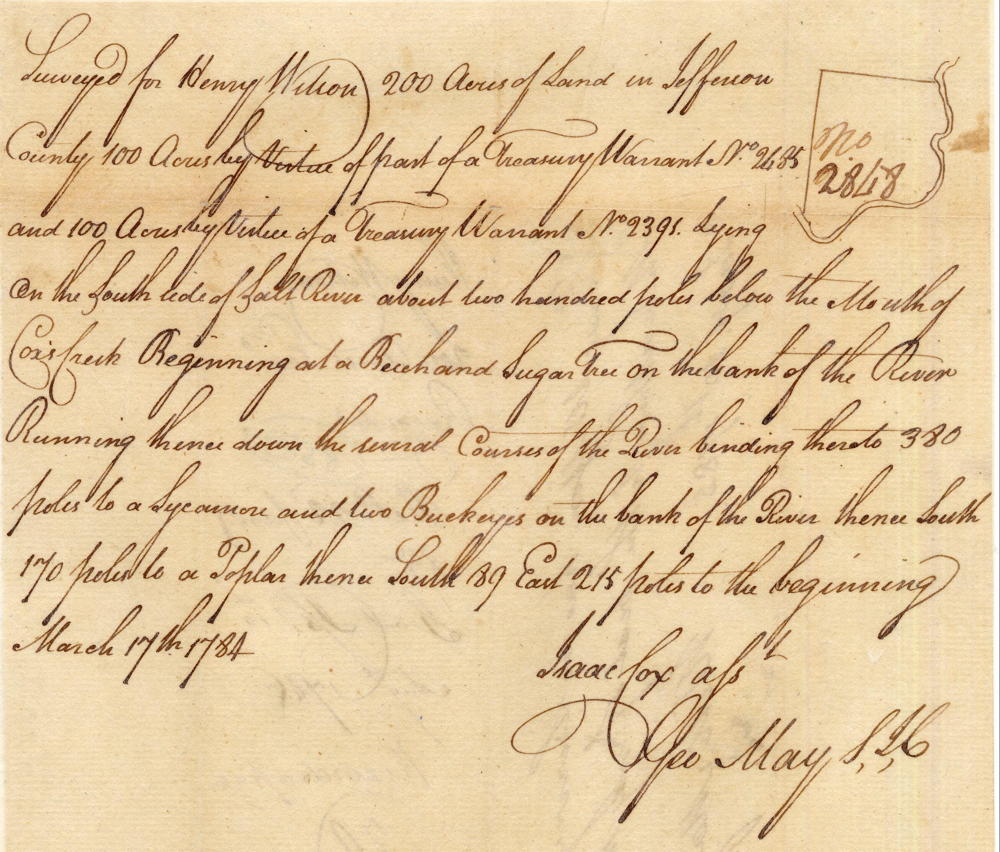 Surveyed for Henry Wilson 200 Acres of Land in Jefferson
County, 100 Acres by Virtue of part of a Treasury Warrant No. 2485
and 100 Acres by Virtue of a Treasury Warrant No. 2391. Lying
On the South side of Salt River about two hundred poles below the Mouth of
Cox's Creek Beginning at a Beech and Sugar Tree on the bank of the River
Running thence down the several Courses of the River binding thereto 380
poles to a Sycamore and two Buckeyes on the bank of the River thence South
170 poles to a Poplar thence South 89 East 215 poles to the beginning
March 17th. 1784
Isaac Cox asst
Geo May S, J, C
No
2848